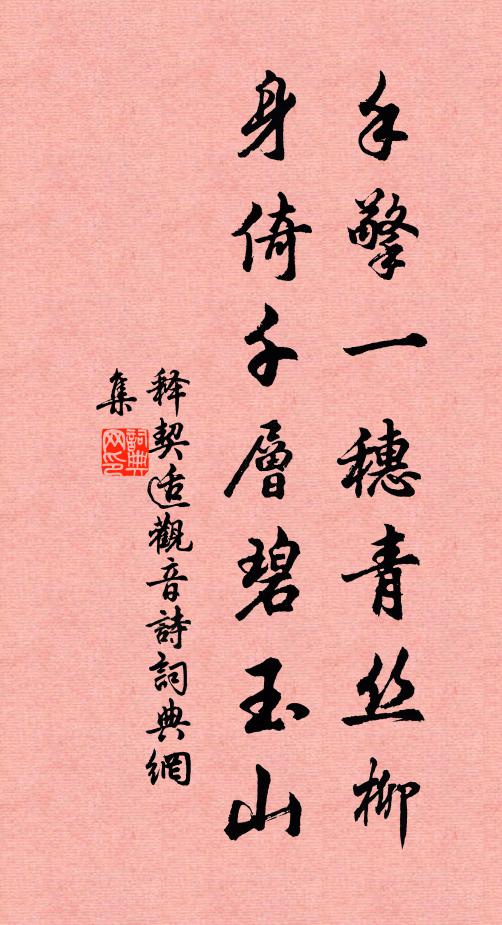 手擎一穗青丝柳
身倚千層碧玉山
释契适觀音詩詞典網
集
詞典网印